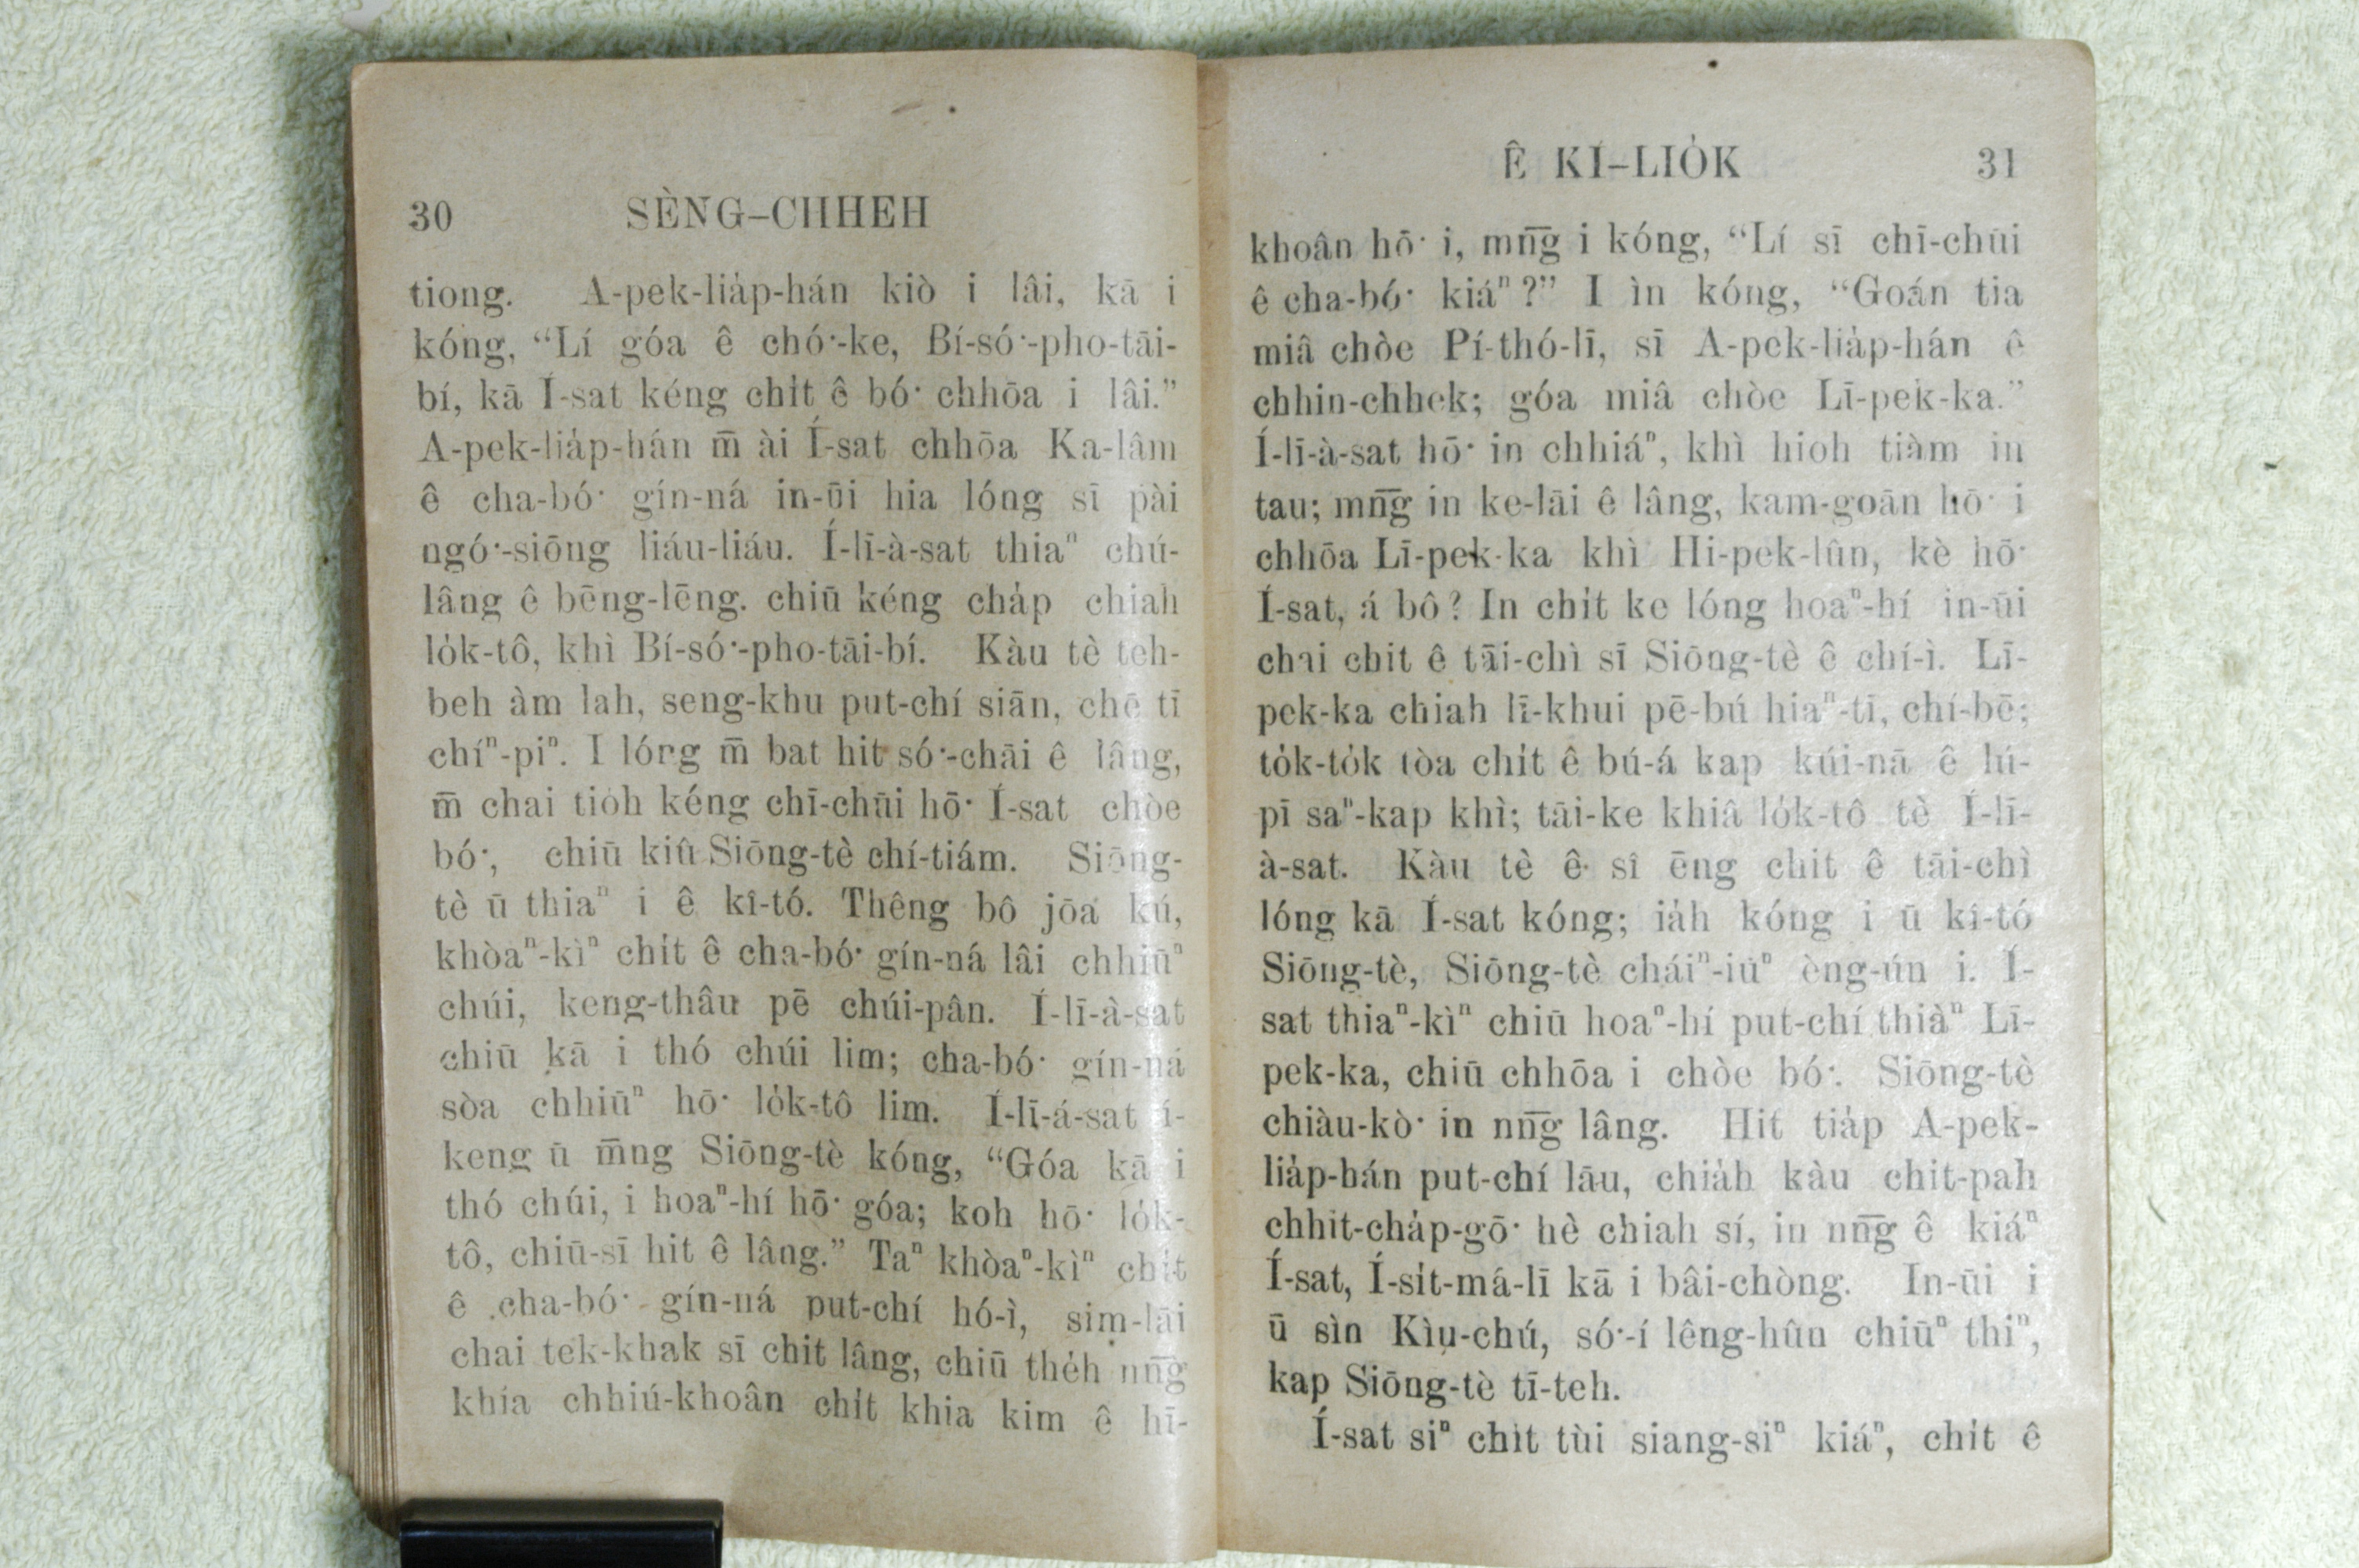 30 SÈNG–CHHEH
tiong. A-pek-lia̍p-hán kiò i lâi, kā i
kóng, “Lí góa ê chó͘-ke, Bí-só͘-pho-tāi-
bí, kā Í-sat kéng chi̍t ê bó͘ chhōa i lâi.”
A-pek-lia̍p-hán m̄ ài Í-sat chhōa Ka-lâm
ê cha-bó͘ gín-ná in-ūi hia lóng sī pài
ngó͘-siōng liáu-liáu. Í-lī-à-sat thiaⁿ chú-
lâng ê bēng-lēng. chiū kéng cha̍p chiah
lo̍k-tô, khì Bí-só͘-pho-tāi-bí. Kàu tè teh-
beh àm lah, seng-khu put-chí siān, chē tī
chíⁿ-piⁿ. I lóng m̄ bat hit só͘-chāi ê lâng,
m̄ chai tio̍h kéng chī-chūi hō͘ Í-sat chòe
bó͘, chiū kiû Siōng-tè chí-tiám. Siōng-
tè ū thiaⁿ i ê kî-tó. Thêng bô jōa kú,
khòaⁿ-kìⁿ chi̍t ê cha-bó͘ gín-ná lâi chhiūⁿ
chúi, keng-thâu pē chúi-pân. Í-lī-à-sat
chiū kā i thó chúi lim; cha-bó͘ gín-ná
sòa chhiūⁿ hō͘ lo̍k-tô lim. Í-lī-á-sat í-
keng ū m̄ng Siōng-tè kóng, “Góa kā i
thó chúi, i hoaⁿ-hí hō͘ góa; koh hō͘ lo̍k-
tô, chiū-sī hit ê lâng.” Taⁿ khòaⁿ-kìⁿ chi̍t
ê cha-bó͘ gín-ná put-chí hó-ì, sim-lāi
chai tek-khak sī chit lâng, chiū the̍h nn̄g
khía chhiú-khoân chi̍t khia kim ê hī-
Ê KÍ–LIO̍K 31
khoân hō͘ i, mn̄g i kóng, “Lí sī chī-chūi
ê cha-bó͘ kiáⁿ?” I ìn kóng, “Goán tia
miâ chòe Pí-thó-lī, sī A-pek-lia̍p-hán ê
chhin-chhek; góa miâ chòe Lī-pek-ka.”
Í-lī-à-sat hō͘ in chhiáⁿ, khì hioh tiàm in
tau; mn̄g in ke-lāi ê lâng, kam-goān hō͘ i
chhōa Lī-pek-ka khì Hi-pek-lûn, kè hō͘
Í-sat, á bô? In chi̍t ke lóng hoaⁿ-hí in-ūi
chai chit ê tāi-chì sī Siōng-tè ê chí-ì. Lī-
pek-ka chiah lī-khui pē-bú hiaⁿ-tī, chí-bē;
to̍k-to̍k tòa chi̍t ê bú-á kap kúi-nā ê lú-
pī saⁿ-kap khì; tāi-ke khiâ lo̍k-tô tè Í-lī-
à-sat. Kàu tè ê sî ēng chit ê tāi-chì
lóng kā Í-sat kóng; ia̍h kóng i ū kî-tó
Siōng-tè, Siōng-tè cháiⁿ-iūⁿ èng-ún i. Í-
sat thiaⁿ-kìⁿ chiū hoaⁿ-hí put-chí thiàⁿ Lī-
pek-ka, chiū chhōa i chòe bó͘. Siōng-tè
chiàu-kò͘ in nn̄g lâng. Hit tia̍p A-pek-
lia̍p-hán put-chí lāu, chia̍h kàu chit-pah
chhit-cha̍p-gō͘ hè chiah sí, in nn̄g ê kiáⁿ
Í-sat, Í-si̍t-má-lī kā i bâi-chòng. In-ūi i
ū sìn Kìu-chú, só͘-í lêng-hûn chiūⁿ thiⁿ,
kap Siōng-tè tī-teh.
Í-sat siⁿ chi̍t tùi siang-siⁿ kiáⁿ, chi̍t ê